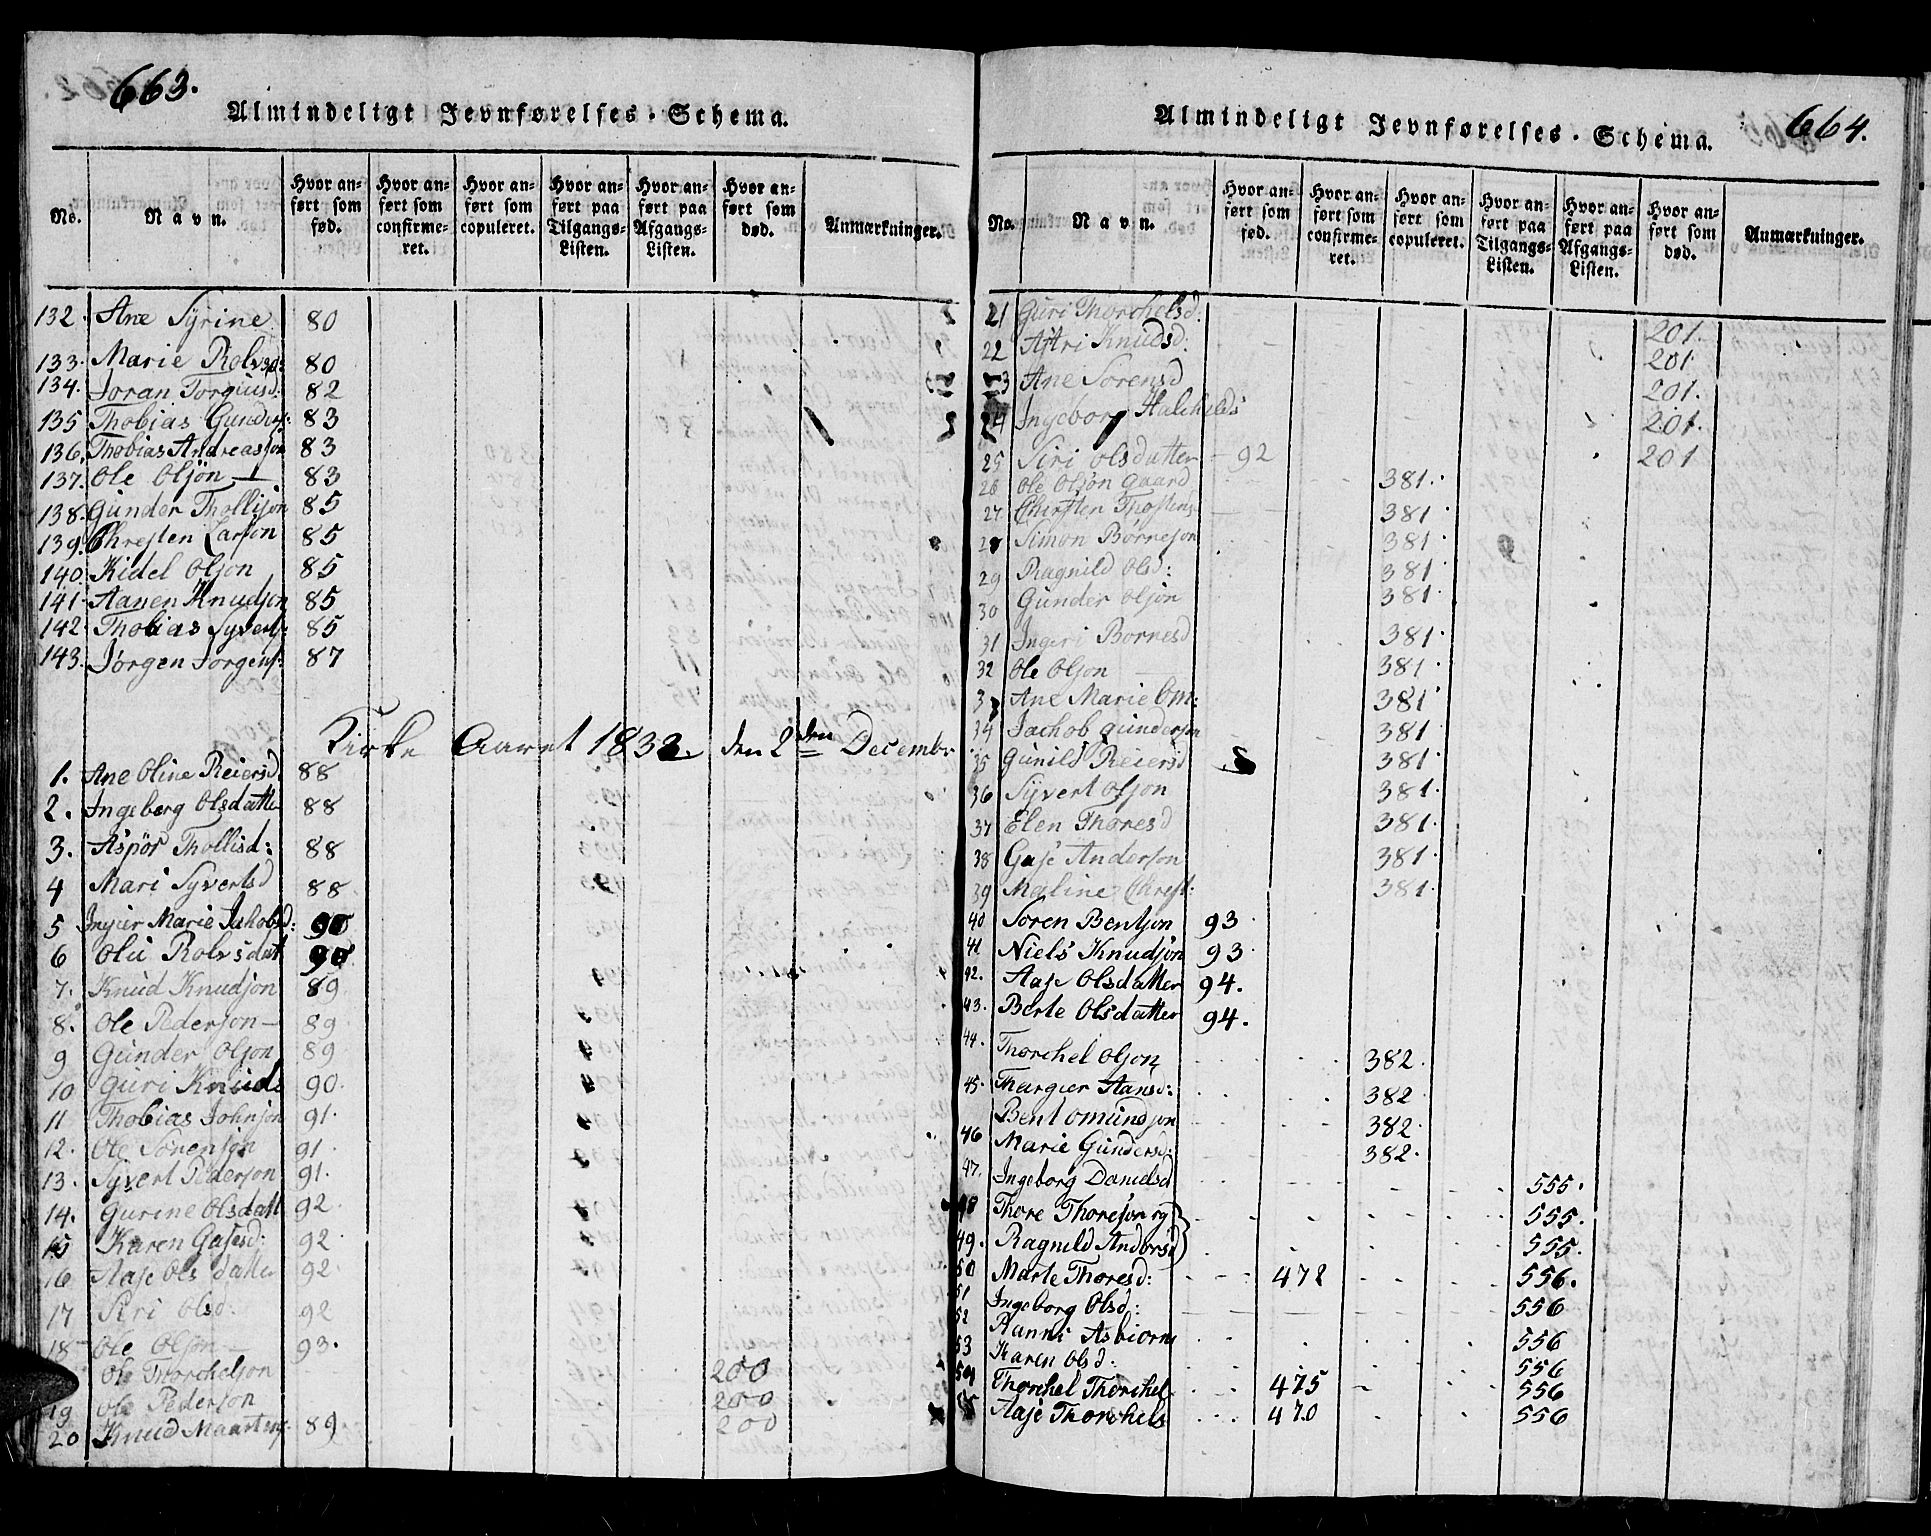 663.
Almindeligt Jevnførelses-Schema.
No. Navn. Hvor anført som fød. Hvor anført som confirmeret. Hvor anført som copuleret. Hvor anført paa Tilgangs-Listen. Hvor anført paa Afgangs-Listen. Hvor anført som død. Anmærkninger.
132. Ane Syrine 80
133. Marie Rolvsd: 80
134. Joran Torgiusd: 82
135 Thobias Gunders: 83
136. Thobias Andreasson 83
137. Ole Olson 83
138. Gunder Thollison 85
139. Chresten Larson 85
140. Kidel Olson 85
141. Aanen Knudson 85
142. Thobias Syverts: 85
143. Jørgen Jorgens: 87
Kirke Aaret 1832. den 2den Decembr
1. Ane Oline Reiersd. 88
2. Ingeberg Olsdatte 88
3. Aspør Thollisd: 88
4 Mari Syvertsd 88
5 Ingier Marie Jakobsd: 90
6 Olu Rolvsdat 90
7. Knud Knudson 89
8. Ole Pederson 89
9 Gunder Olson 89
10 Guri Knuds 90.
11 Thobias Johnson 91.
12. Ole Sørenson 91.
13. Syvert Pederson 91.
14. Gurine Olsdatt 92.
15 Karen Gasesd: 92.
16 Aase Olsdatter 92.
17 Siri Olsd: 92
18 Ole Olson 93.
Ole Thorchelson 200
19 Ole Pederson 200
20 Knud Maartens: 89. 200
664.
Almindeligt Jevnførelses-Schema.
No. Navn. Hvor anført som fød. Hvor anført som confirmeret. Hvor anført som copuleret. Hvor anført paa Tilgangs-Listen. Hvor anført paa Afgangs-Listen. Hvor anført som død. Anmærkninger.
21 Guri Thorchelsd: 201.
22 Astri Knudsd: 201
23 Ane Sorensd 201.
24 Ingeborg Halchelds 201.
25 Siri Olsdatter 92 201
26 Ole Olson Gaard 381.
27 Chirsten Thostens 381.
28 Simon Børneson 381.
29 Ragnild Olsd: 381.
30 Gunder Olson 381.
31 Ingeri Bornesd 381.
32 Ole Olson 381.
33 Ane Marie Om: 381.
34 Jachob Gunderson 381
35 Gunild Reiersd 381.
36 Syvert Olson 381.
37 Elen Thoresd 381.
38 Gase Anderson 381.
39 Maline Christ: 381.
40 Soren Bentson 93
41 Niels Knudson 93
42. Aase Olsdatter 94.
43. Berte Olsdatter 94.
44. Thorchel Olson 382.
45. Thargier Aansd: 382
Bent Omundson 382.
46 Marie Gundersd: 382.
47. Ingeborg Danielsd 555.
48 Thore Thoreson og 555.
49. Ragnild Andersd 555.
50 Marte Thoresd: 472 556.
51 Ingeborg Olsd: 556
52 Ranni Asbiorns 556
53 Karen Olsd: 556
54 Thorchel Thorchel 475 556
55 Aase Thorchels 470 556